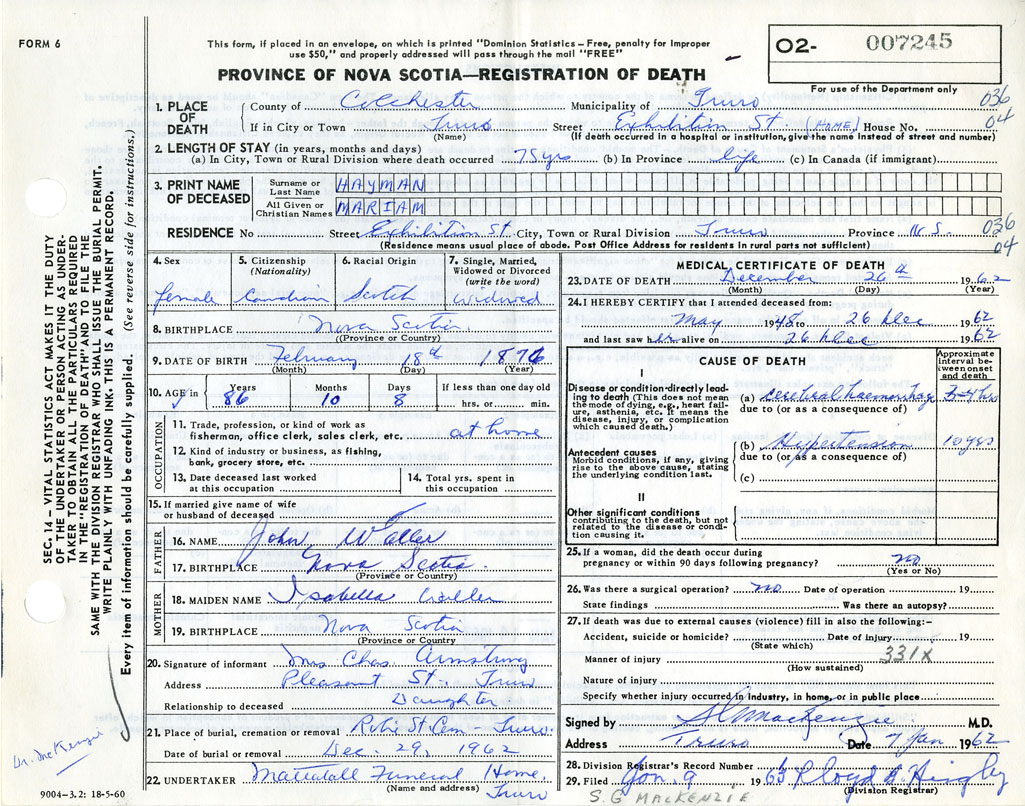 FORM 6
This form, if placed in an envelope, on which is printed "Dominion Statistics – Free, penalty for improper
use $50," and properly addressed will pass through the mail "FREE"
PROVINCE OF NOVA SCOTIA—REGISTRATION OF DEATH
O2- 007245
For use of the Department only
1. PLACE OF DEATH County of Colchester Municipality of Truro 036
If in City or Town Truro Street Exhibition St (HOME) House No. 04
(Name) (If death occurred in a hospital or institution, give the name instead of street and number)
2. LENGTH OF STAY (in years, months and days)
(a) In City, Town or Rural Division where death occurred 75 yrs (b) In Province life (c) In Canada (if immigrant)
3. PRINT NAME OF DECEASED Surname or Last Name HAYMAN
All Given or Christian Names MARIAM
RESIDENCE No Street Exhibition St. City, Town or Rural Division Truro Province N.S. 036
(Residence means usual place of abode. Post Office Address for residents in rural parts not sufficient) 04
4. Sex female
5. Citizenship (Nationality) Canadian
6. Racial Origin Scotch
7. Single, Married, Widowed or Divorced (write the word) widowed
8. BIRTHPLACE Nova Scotia
(Province or Country)
9. DATE OF BIRTH February 18th 1876
(Month) (Day) (Year)
10. AGE in Years 86 Months 10 Days 8 If less than one day old hrs. or min.
OCCUPATION
11. Trade, profession, or kind of work as
fisherman, office clerk, sales clerk, etc. at home
12. Kind of industry or business, as fishing,
bank, grocery store, etc.
13. Date deceased last worked
at this occupation
14. Total yrs. spent in
this occupation
15. If married give name of wife
or husband of deceased
FATHER
16. NAME John Waller
17. BIRTHPLACE Nova Scotia
(Province or Country)
MOTHER
18. MAIDEN NAME Isabella
19. BIRTHPLACE Nova Scotia
(Province or Country
20. Signature of informant Mrs Chas. Armstrong
Address Pleasant St. Truro
Relationship to deceased Daughter
21. Place of burial, cremation or removal Robie St Cem - Truro
Date of burial or removal Dec. 29, 1962
22. UNDERTAKER Mattatall Funeral Home,
(Name and address) Truro
9004-3.2: 18-5-60
MEDICAL CERTIFICATE OF DEATH
23. DATE OF DEATH December 26th 1962
(Month) (Day) (Year)
24. I HEREBY CERTIFY that I attended deceased from:
May 1948 to 26 Dec 1962
and last saw her alive on 26 Dec 1962
CAUSE OF DEATH
Approximate interval between onset and death
I
Disease or condition directly leading to death (This does not mean the mode of dying, e.g., heart failure, asthenia, etc. It means the disease, injury, or complication which caused death.)
(a) cerebral haemorrhage 3-4 hrs
due to (or as a consequence of)
Antecedent causes
Morbid conditions, if any, giving rise to the above cause, stating the underlying condition last.
(b) Hypertension 10 yrs
due to (or as a consequence of)
(c)
II
Other significant conditions
contributing to the death, but not related to the disease or condition causing it.
25. If a woman, did the death occur during
pregnancy or within 90 days following pregnancy? no
(Yes or No)
26. Was there a surgical operation? no Date of operation 19
State findings Was there an autopsy?
27. If death was due to external causes (violence) fill in also the following:–
Accident, suicide or homicide? Date of injury 19
(State which)
Manner of injury 331X
(How sustained)
Nature of injury
Specify whether injury occurred in industry, in home, or in public place
Signed by SG MacKenzie M.D.
Address Truro Date 7 Jan 1962
28. Division Registrar's Record Number
29. Filed Jan. 9 1963
(Division Registrar)
S. G MACKENZIE
SEC. 14 – VITAL STATISTICS ACT MAKES IT THE DUTY
OF THE UNDERTAKER OR PERSON ACTING AS UNDER-
TAKER TO OBTAIN ALL THE PARTICULARS REQUIRED
IN THE "REGISTRATION OF DEATH" AND TO FILE THE
SAME WITH THE DIVISION REGISTRAR WHO SHALL ISSUE THE BURIAL PERMIT.
WRITE PLAINLY WITH UNFADING INK—THIS IS A PERMANENT RECORD.
Every item of information should be carefully supplied. (See reverse side for instructions.)
Dr. MacKenzie